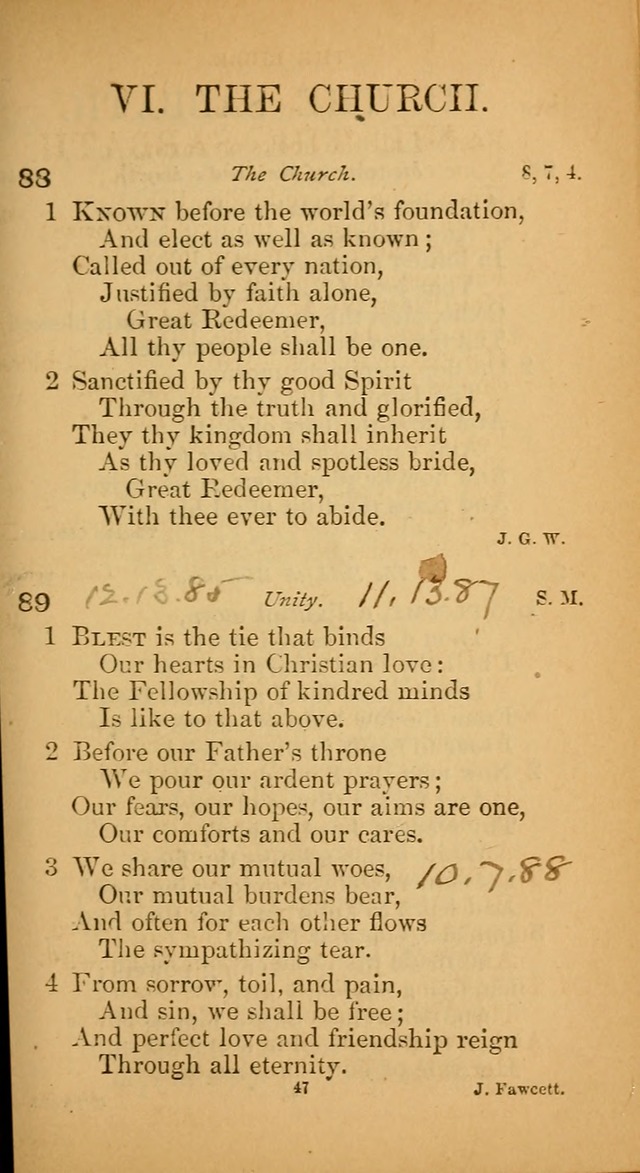 VI. THE CHURCH.
88 The Church. 8, 7, 4.
1 KNOWN before the world's foundation,
And elect as well as known;
Called out of every nation,
Justified by faith alone,
Great Redeemer,
All thy people shall be one.
2 Sanctified by thy good Spirit
Through the truth and glorified,
They thy kingdom shall inherit
As thy loved and spotless bride,
Great Redeemer,
With thee ever to abide.
J. G. W.
89 12.13.85 Unity. 11, 13.87 S. M.
1 BLEST is the tie that binds
Our hearts in Christian love:
The Fellowship of kindred minds
Is like to that above.
2 Before our Father's throne
We pour our ardent prayers;
Our fears, our hopes, our aims are one,
Our comforts and our cares.
3 We share our mutual woes, 10,7,88
Our mutual burdens bear,
And often for each other flows
The sympathizing tear.
4 From sorrow, toil, and pain,
And sin, we shall be free;
And perfect love and friendship reign
Through all eternity.
47 J. Fawcett.